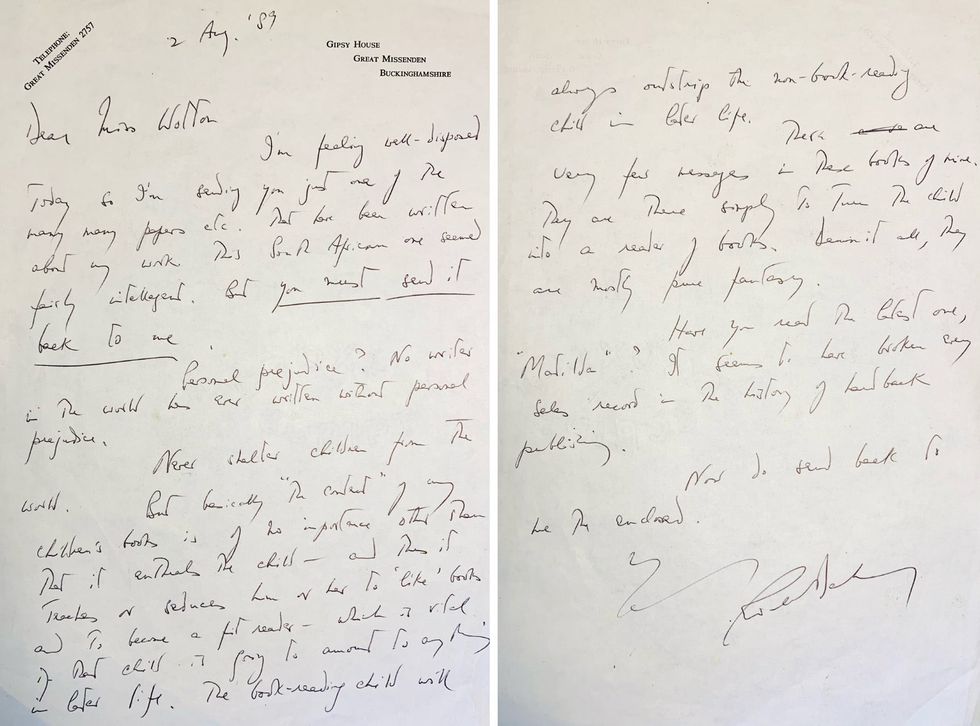 TELEPHONE:
GREAT MISSENDEN 2757
2 Aug. '89
GIPSY HOUSE
GREAT MISSENDEN
BUCKINGHAMSHIRE
Dear Miss Wotton
I'm feeling well-disposed
today so I'm sending you just one of the
many many papers etc. that have been written
about my work. This South African one seemed
fairly intelligent. But you must send it
back to me
Personal prejudice? No writer
in the world has ever written without personal
prejudice.
Never shelter children from the
world. But basically "the content" of any
children's books is of no importance other than
that it enthrals the child – and thus it
teaches or seduces him or her to 'like' books
and to become a fit reader – which is vital
if that child is going to amount to anything
in later life. The book-reading child will
always outstrip the non-book-reading
child in later life.
There are
very few messages in these books of mine.
They are there simply to turn the child
into a reader of books. Damn it all, they
are mostly pure fantasy.
Have you read the latest one,
"Matilda"? It seems to have broken every
sales record in the history of hardback
publishing.
Now do send back to
me the enclosed.
Roald Dahl